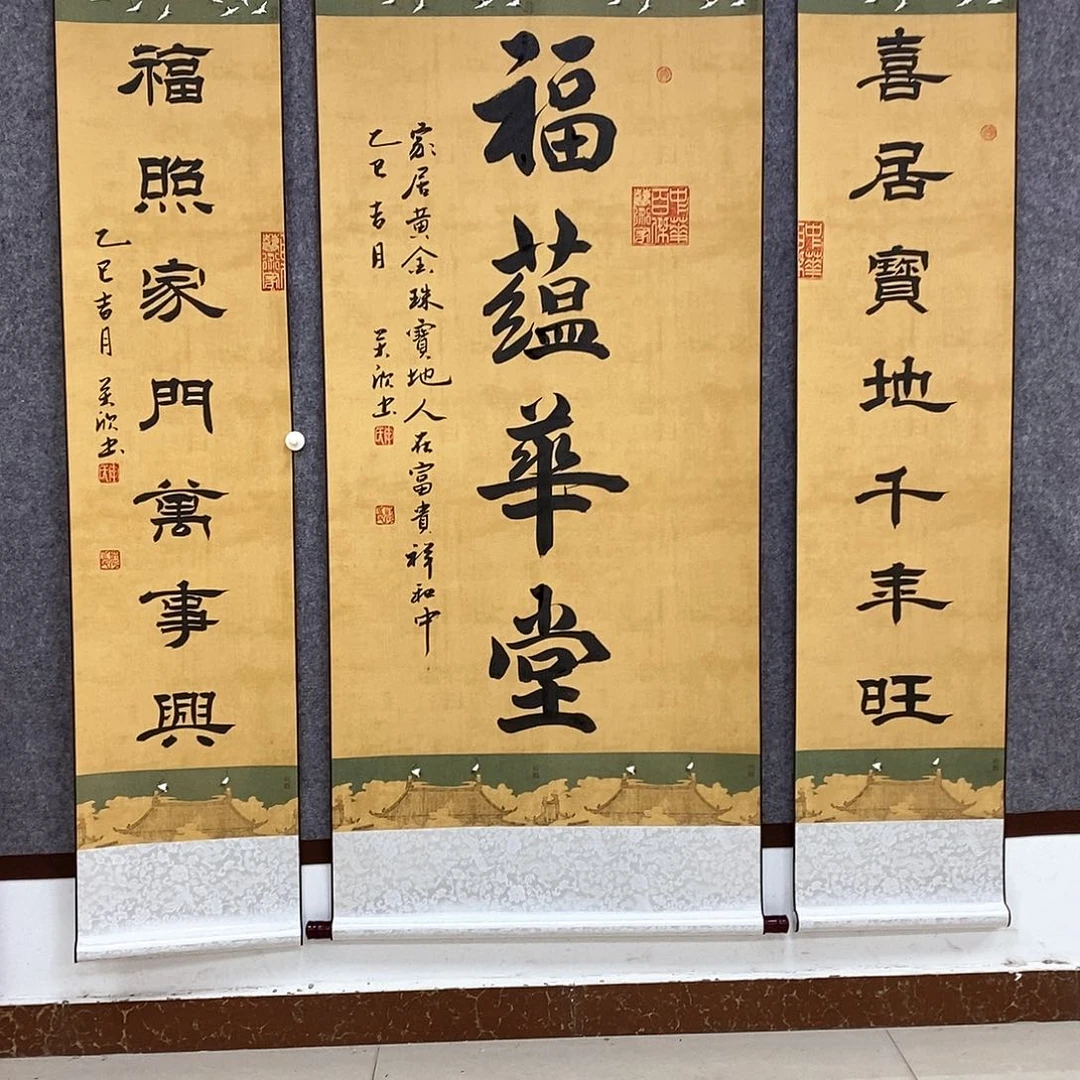 喜居寶地千年旺
中華
福藴華堂
中華百傑
家居黄金珠寶地人在富貴祥和中
乙巳吉月 欣书
福照家門萬事興
乙巳吉月 欣书